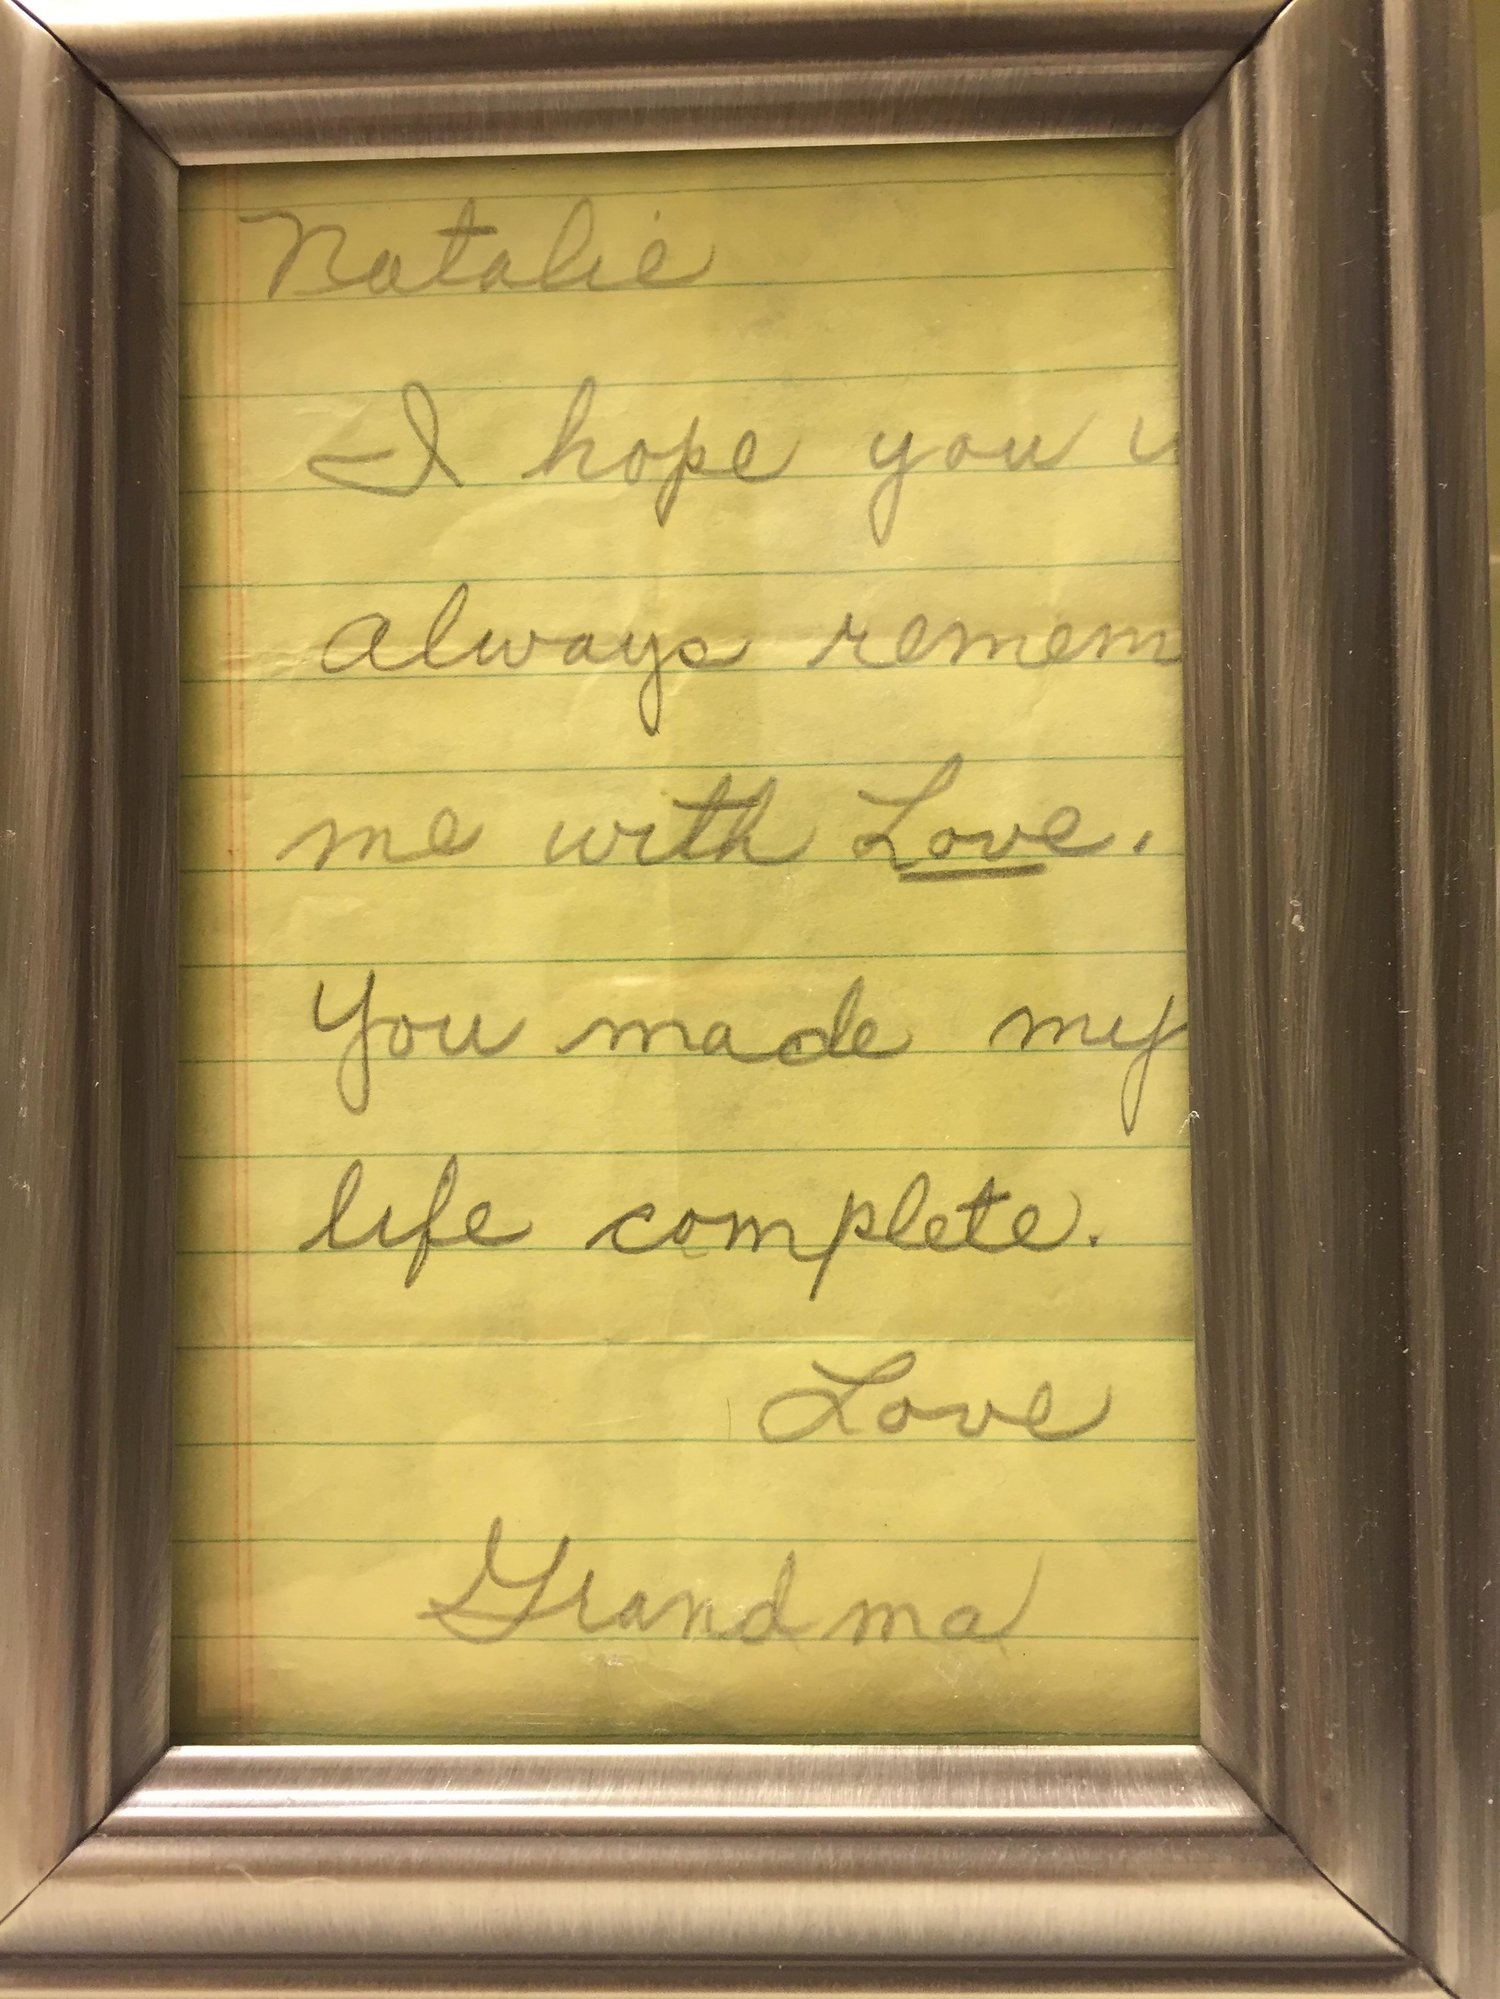 Natalie
I hope you
always remem
me with Love.
You made my
life complete.
Love
Grandma